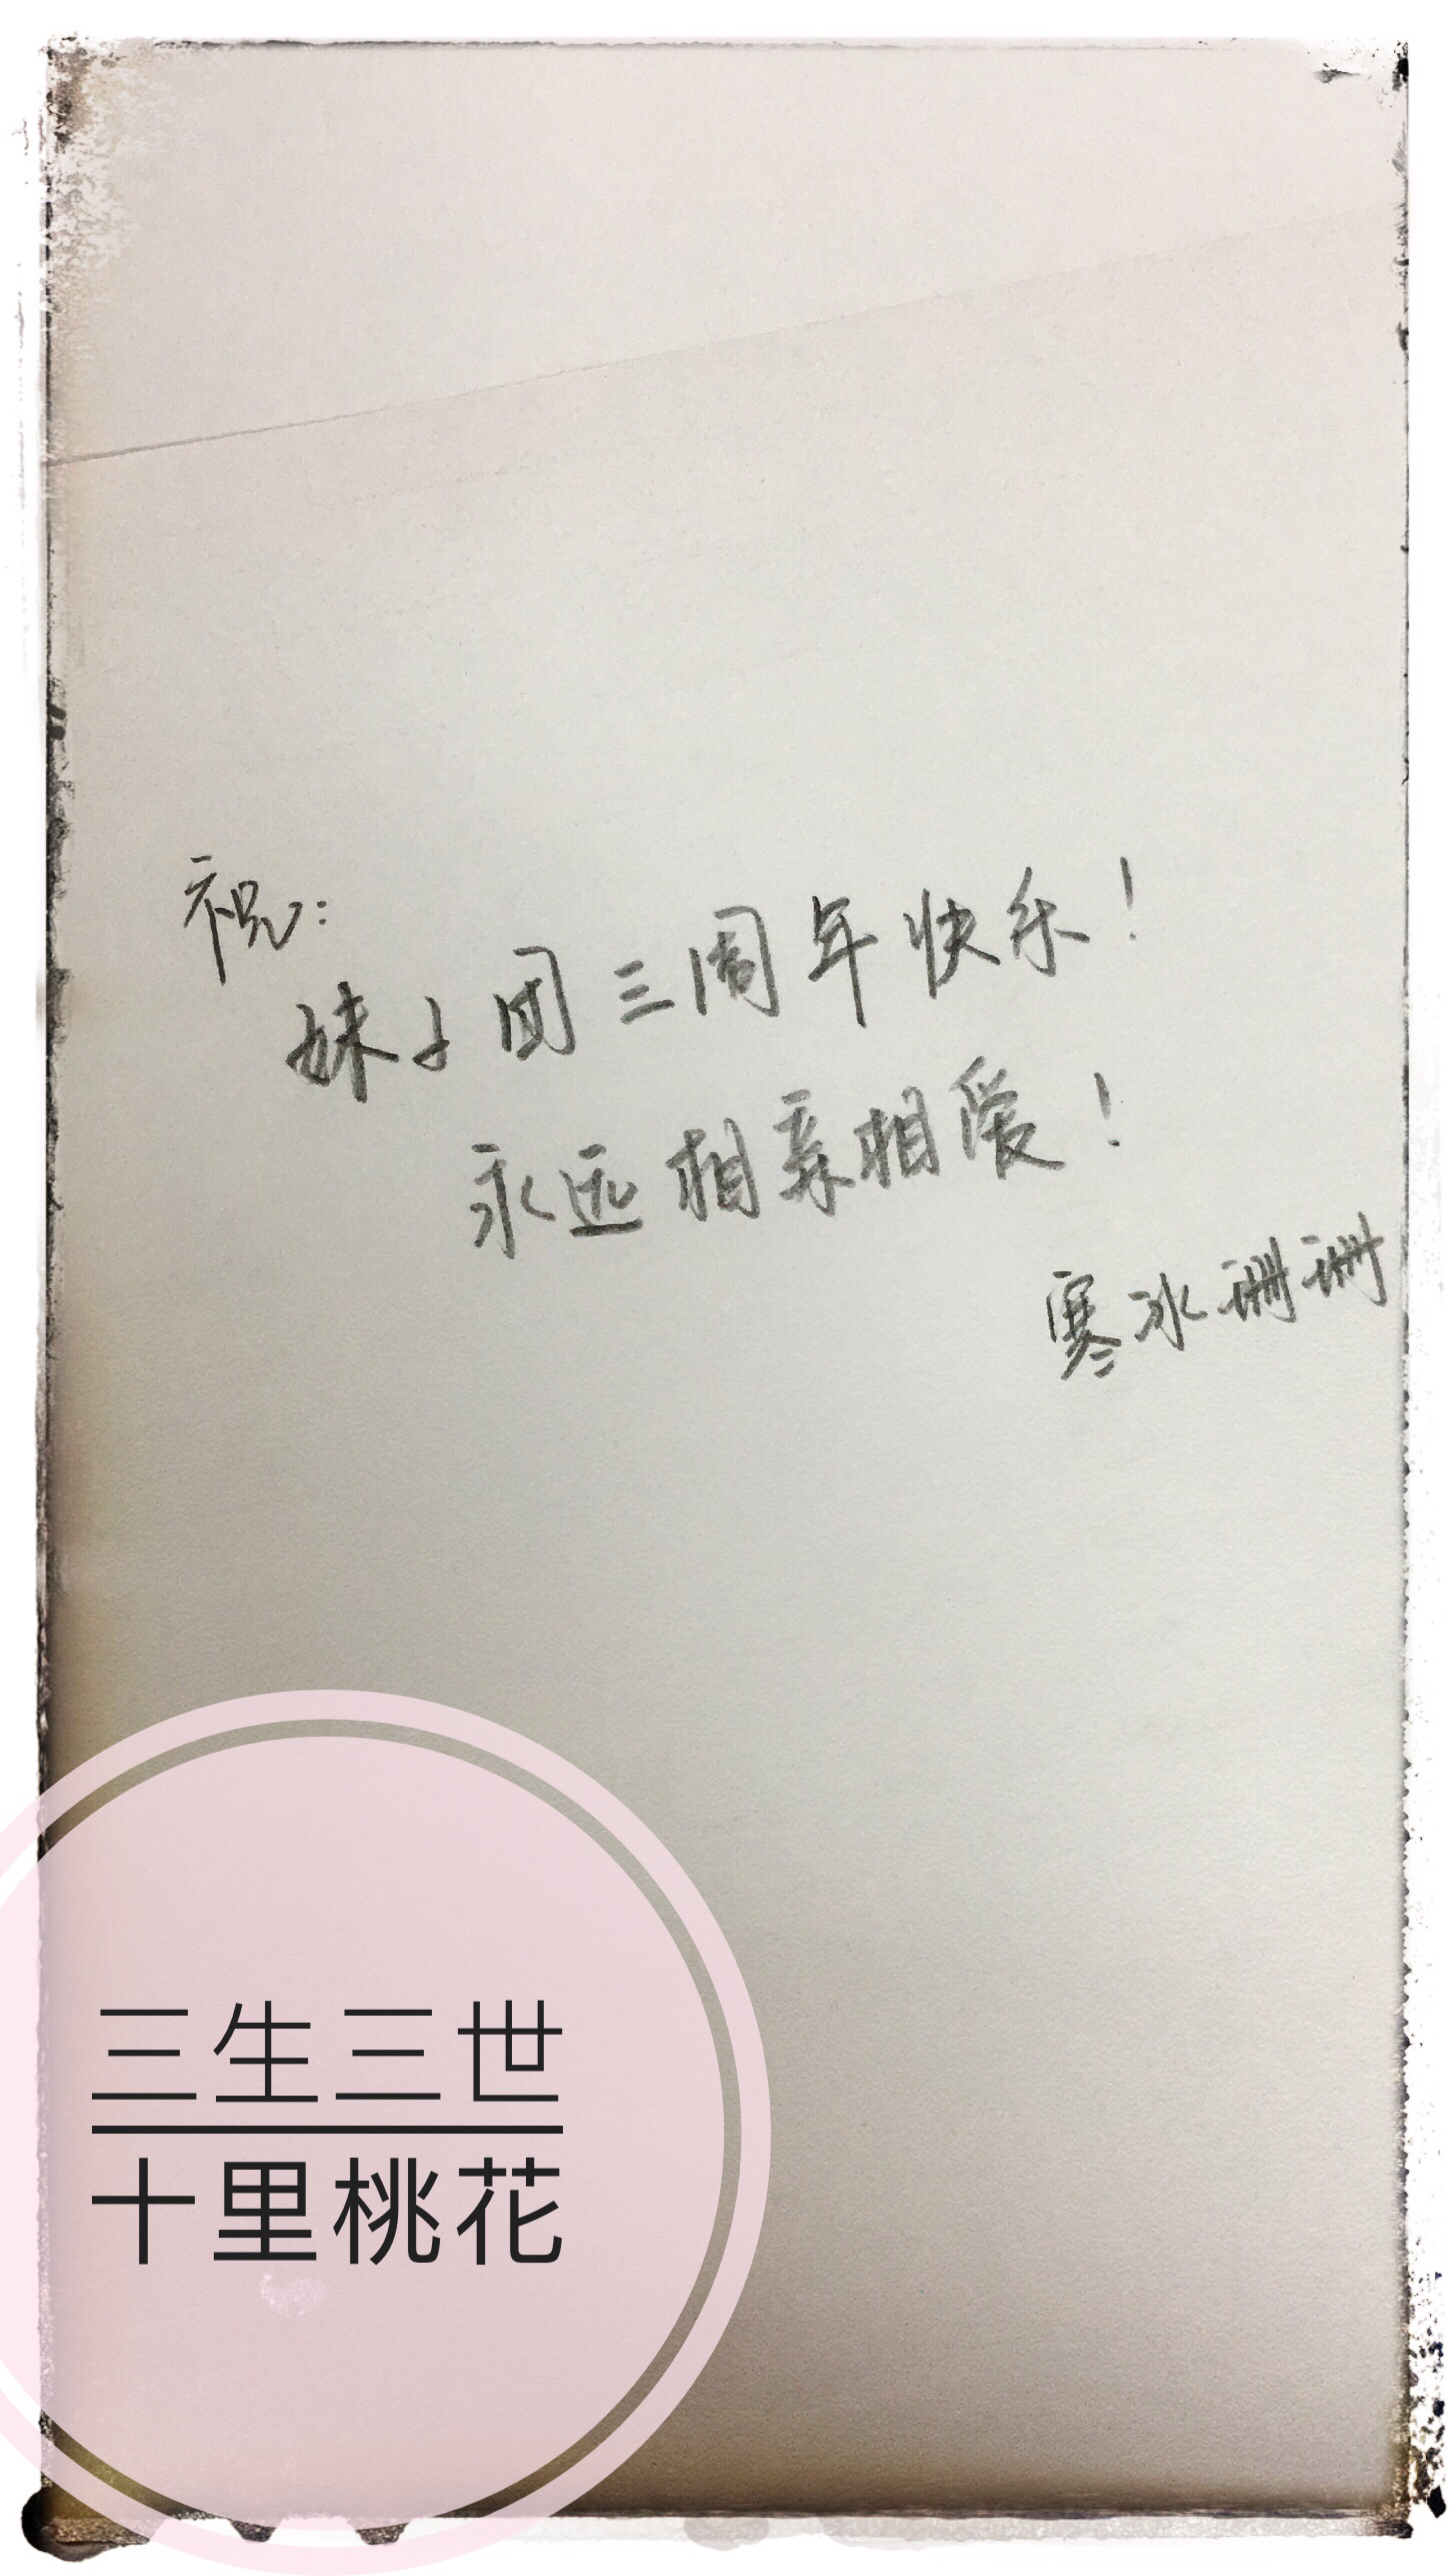 祝：
妹子团三周年快乐！
永远相亲相爱！
寒冰珊珊
三生三世
十里桃花